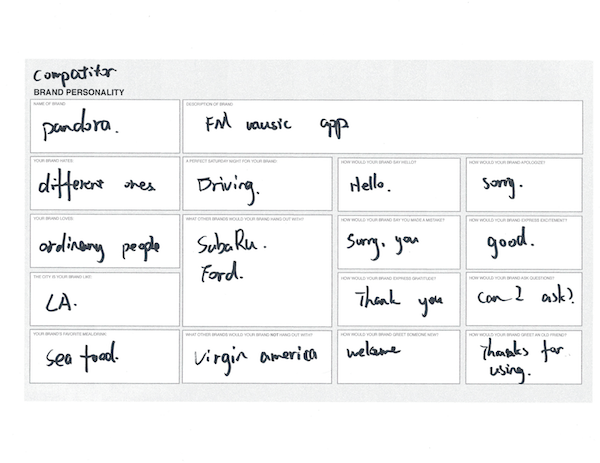 Compatitor
BRAND PERSONALITY
NAME OF BRAND
pandora.
DESCRIPTION OF BRAND
FM vausic app
YOUR BRAND HATES:
different ones
A PERFECT SATURDAY NIGHT FOR YOUR BRAND:
Driving.
HOW WOULD YOUR BRAND SAY HELLO?
Hello.
HOW WOULD YOUR BRAND APOLOGIZE?
sorry.
YOUR BRAND LOVES:
ordinary people
WHAT OTHER BRANDS WOULD YOUR BRAND HANG OUT WITH?
SubaRu.
Ford.
HOW WOULD YOUR BRAND SAY YOU MADE A MISTAKE?
Surry, you
HOW WOULD YOUR BRAND EXPRESS EXCITEMENT?
good.
THE CITY IS YOUR BRAND LIKE:
LA.
HOW WOULD YOUR BRAND EXPRESS GRATITUDE?
Thank you
HOW WOULD YOUR BRAND ASK QUESTIONS?
can I ask?
YOUR BRAND'S FAVORITE MEAL/DRINK:
sea food.
WHAT OTHER BRANDS WOULD YOUR BRAND NOT HANG OUT WITH?
virgin america
HOW WOULD YOUR BRAND GREET SOMEONE NEW?
welcome
HOW WOULD YOUR BRAND GREET AN OLD FRIEND?
Thanks for
using.